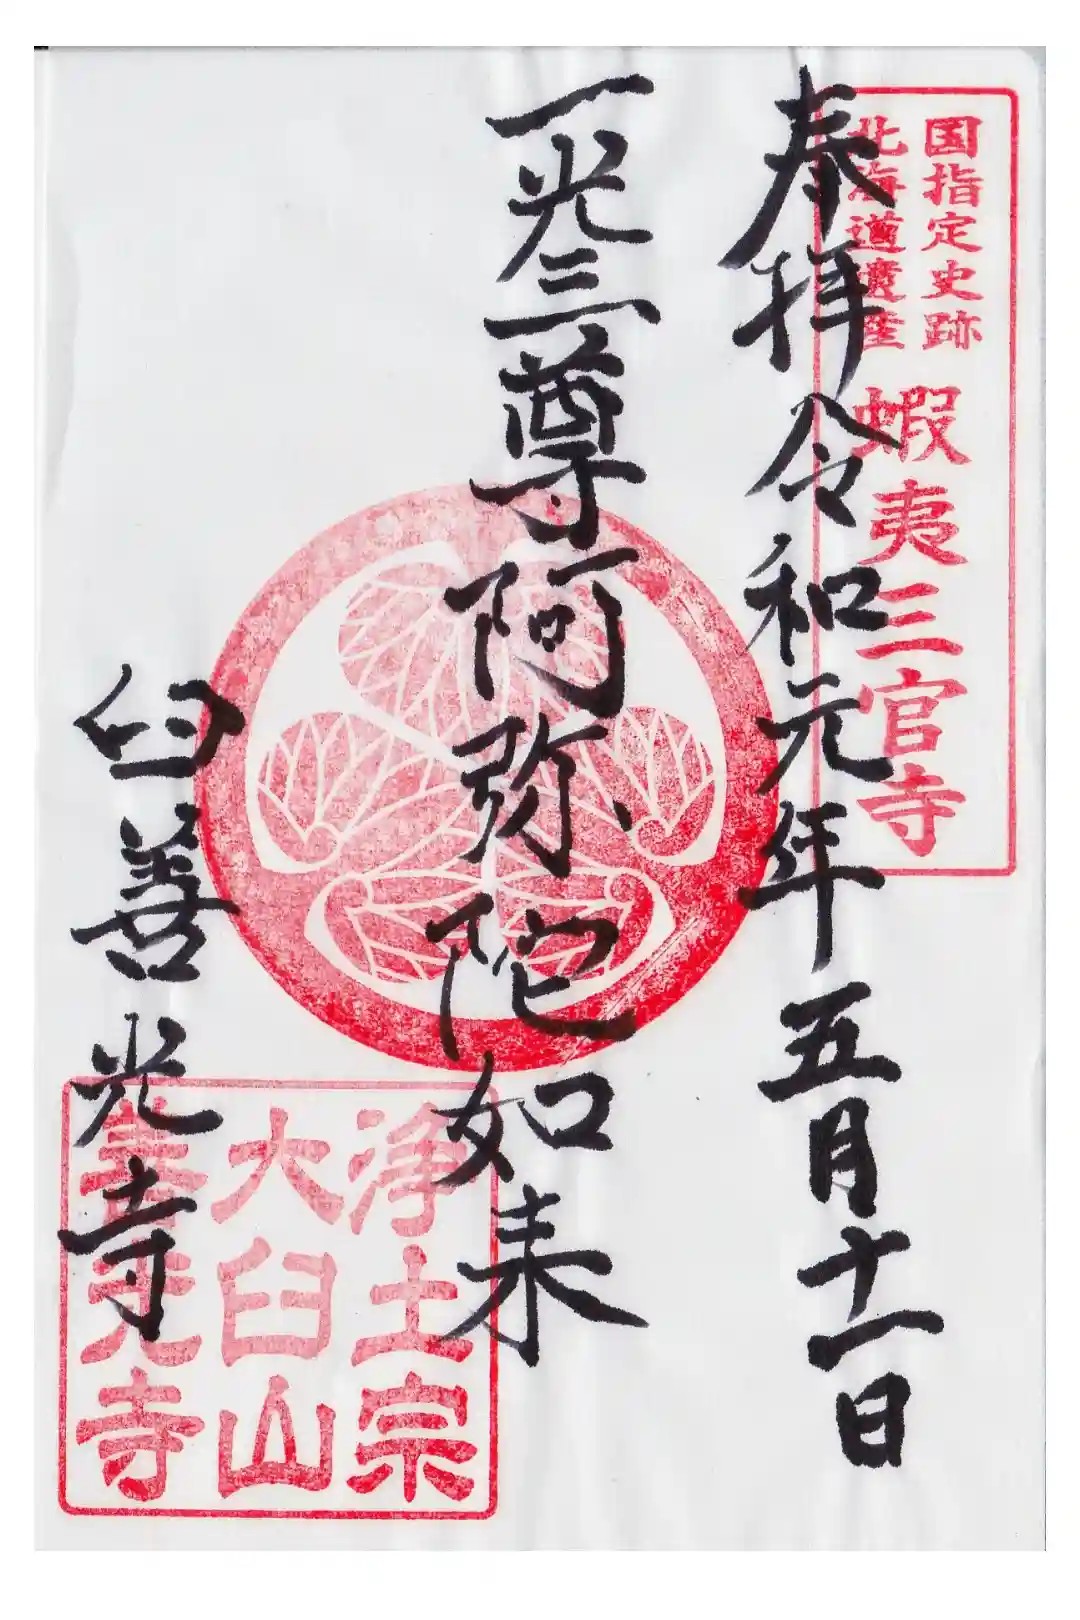 国指定史跡
北海道遺産
蝦夷三官寺
奉拝令和元年五月十一日
一光三尊阿弥陀如来
臼善光寺
浄土宗
大臼山
善光寺